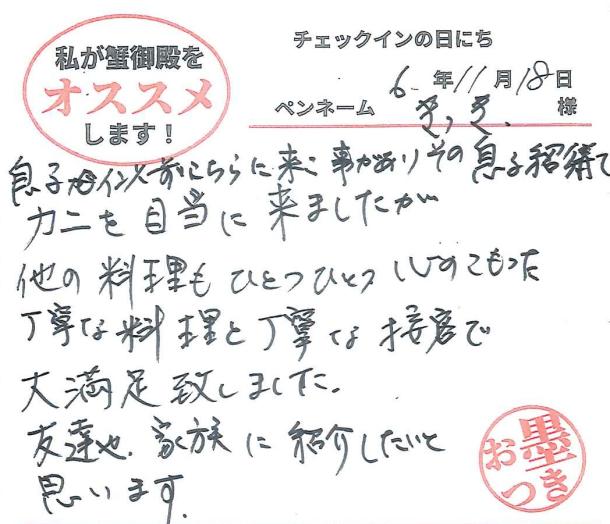 私が蟹御殿を
オススメ
します!
チェックインの日にち
6年11月18日
ペンネーム 様
息子が こちらに来た事がありその息子紹待で
カニを目当に来ましたが
他の料理もひとつひとつ心のこもった
丁寧な料理と丁寧な接客で
大満足致しました。
友達や、家族に紹介したいと
思います.
お墨つき